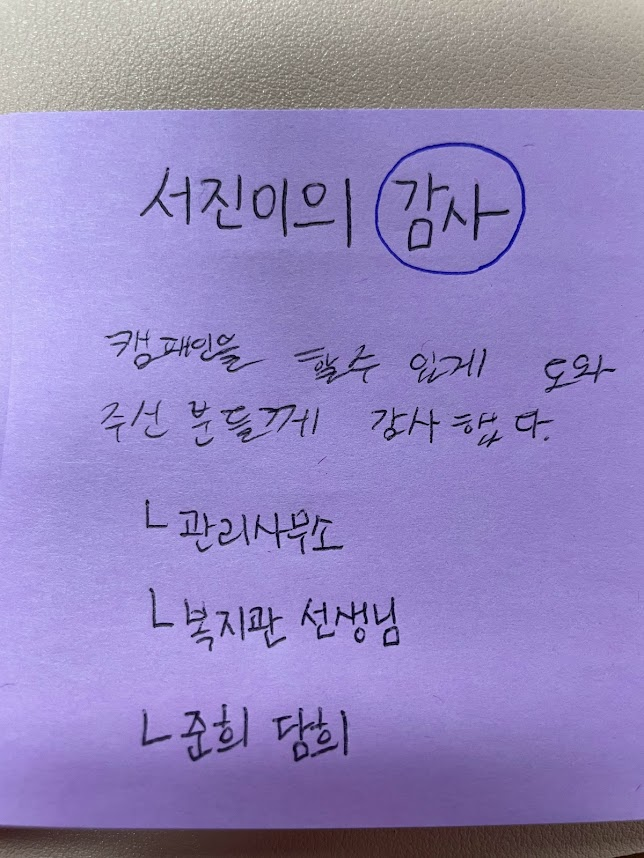 서진이의 감사
캠패인을 할수 있게 도와
주신 분들께 감사했다.
ㄴ관리사무소
ㄴ복지관 선생님
ㄴ준희 담희